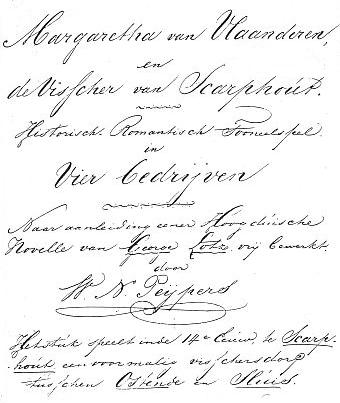 Margaretha van Vlaanderen,
en
de Visscher van Scarphoút.
Historisch. Romantisch Tooneelspel
in
Vier bedrijven
Naar aanleiding eener Hoogduische
Novelle van George Lotz vrij bewerkt.
door
W. N. Peypers
Het stuk speelt in de 14e Eeuw, te Scarp
hoút een voormalig visschersdorp
tusschen Ostende en Sluis.